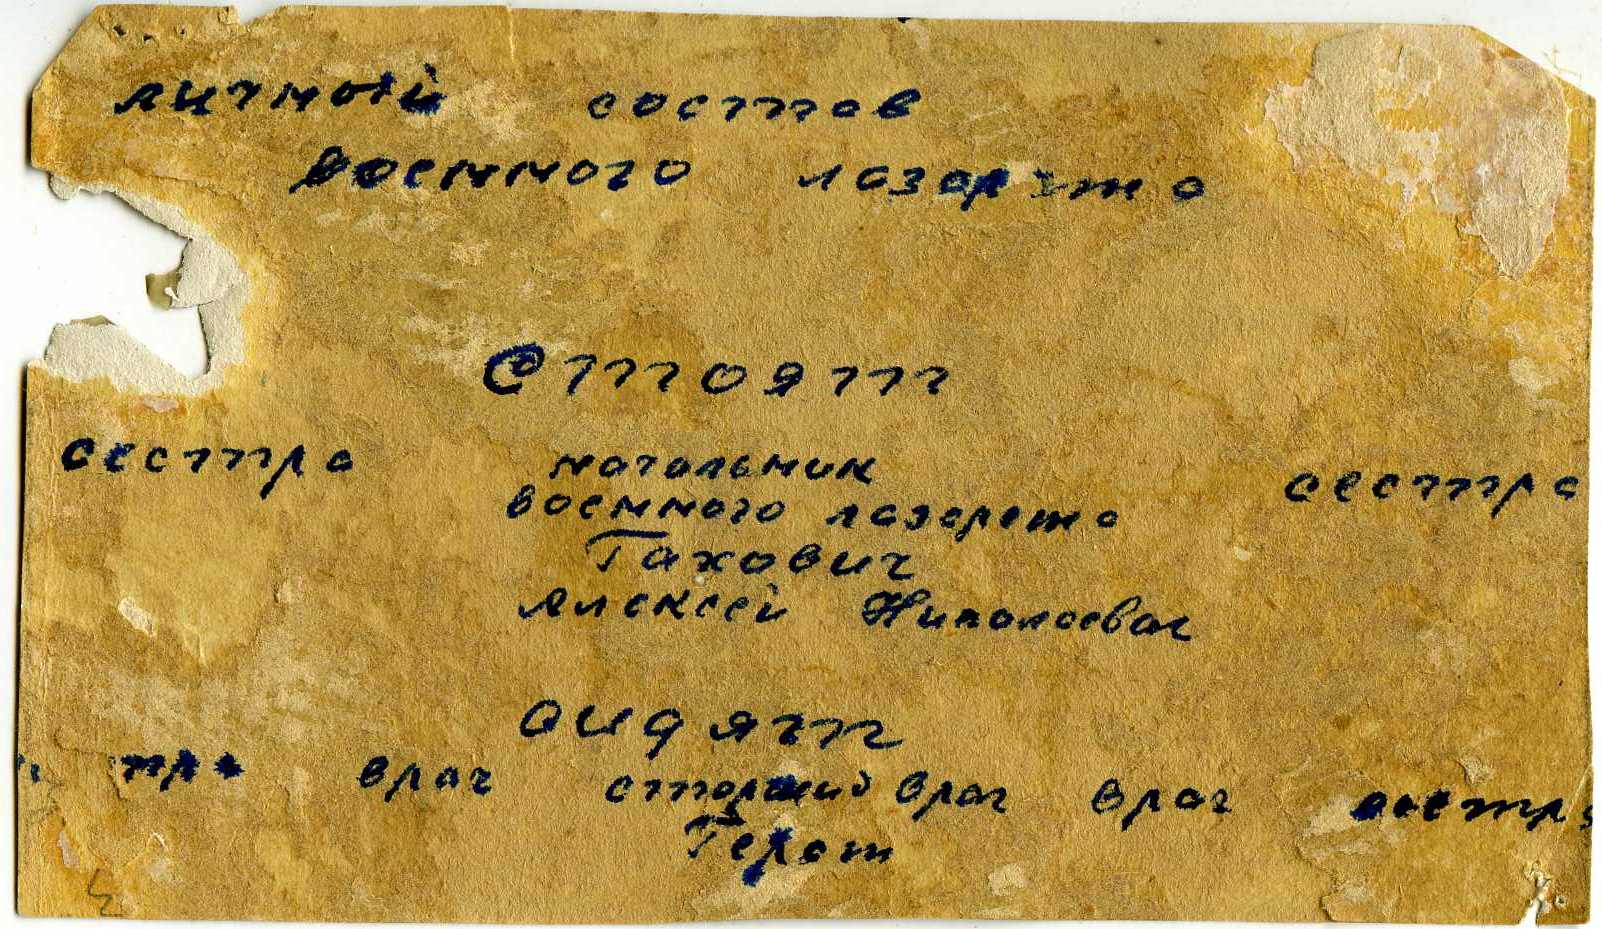 личный состав
военного лазарета
Стоят
сестра начальник сестра
военного лазарета
Гахович
Алексей Николаевич
сидят
врач старший врач врач сестра
Герат